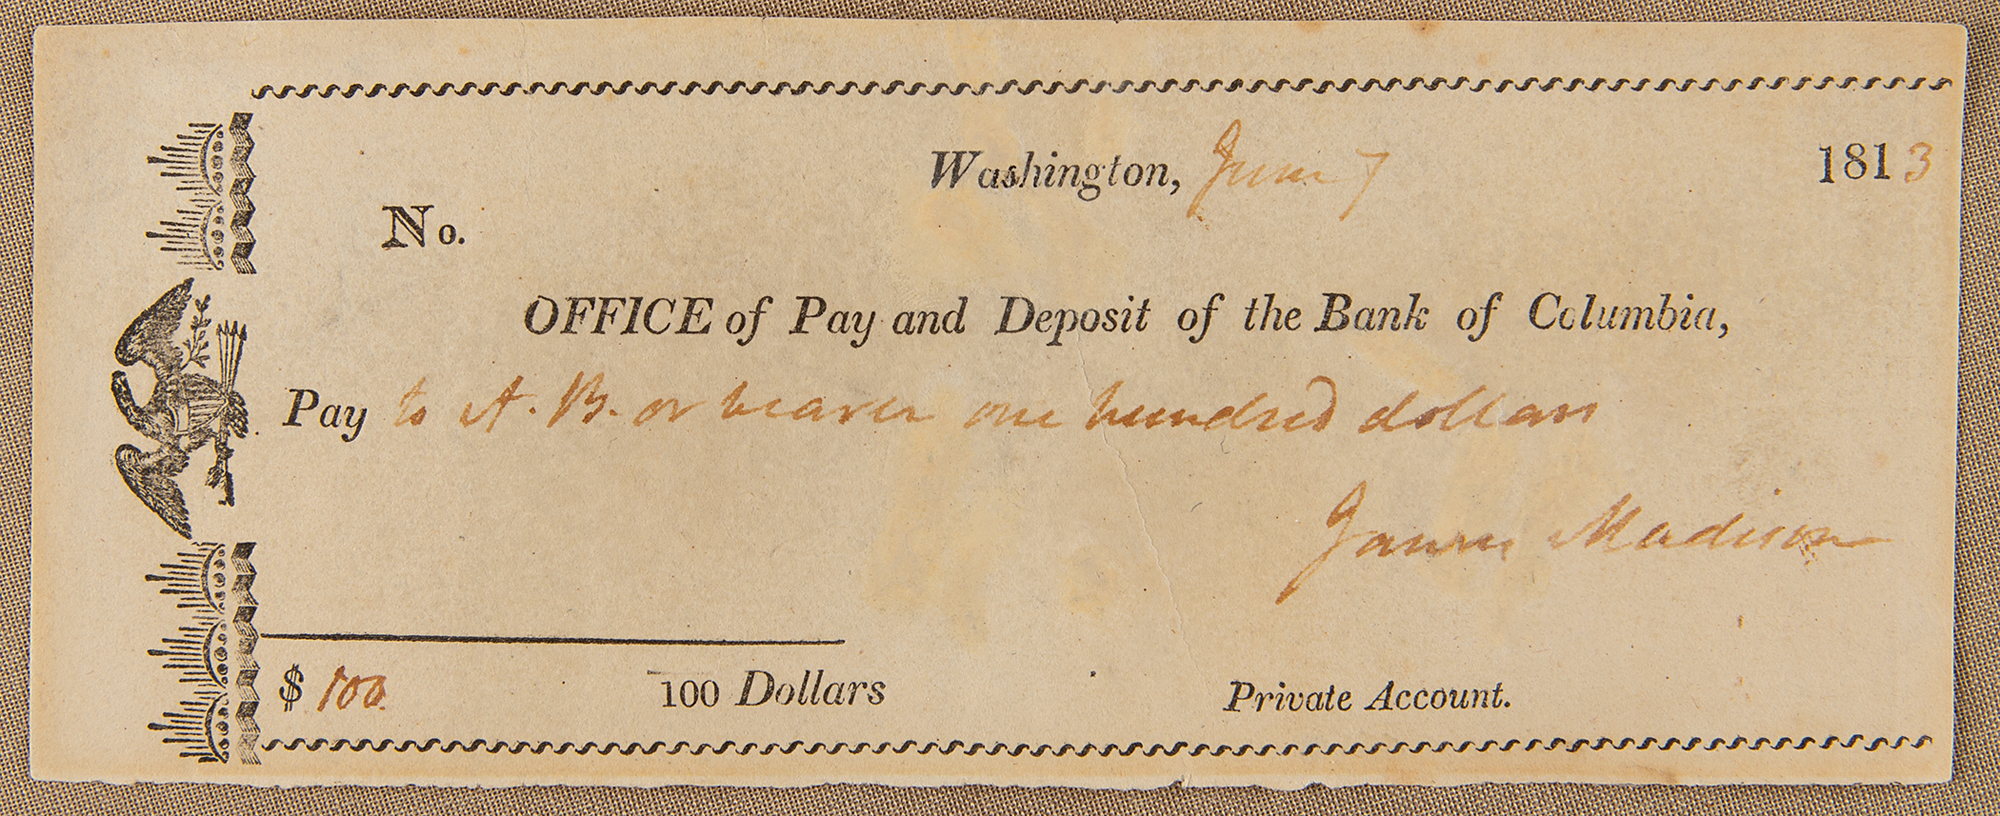 Washington, June 7 1813
No.
OFFICE of Pay and Deposit of the Bank of Columbia,
Pay to A. B. or bearer one hundred dollars
James Madison
$ 100 100 Dollars Private Account.